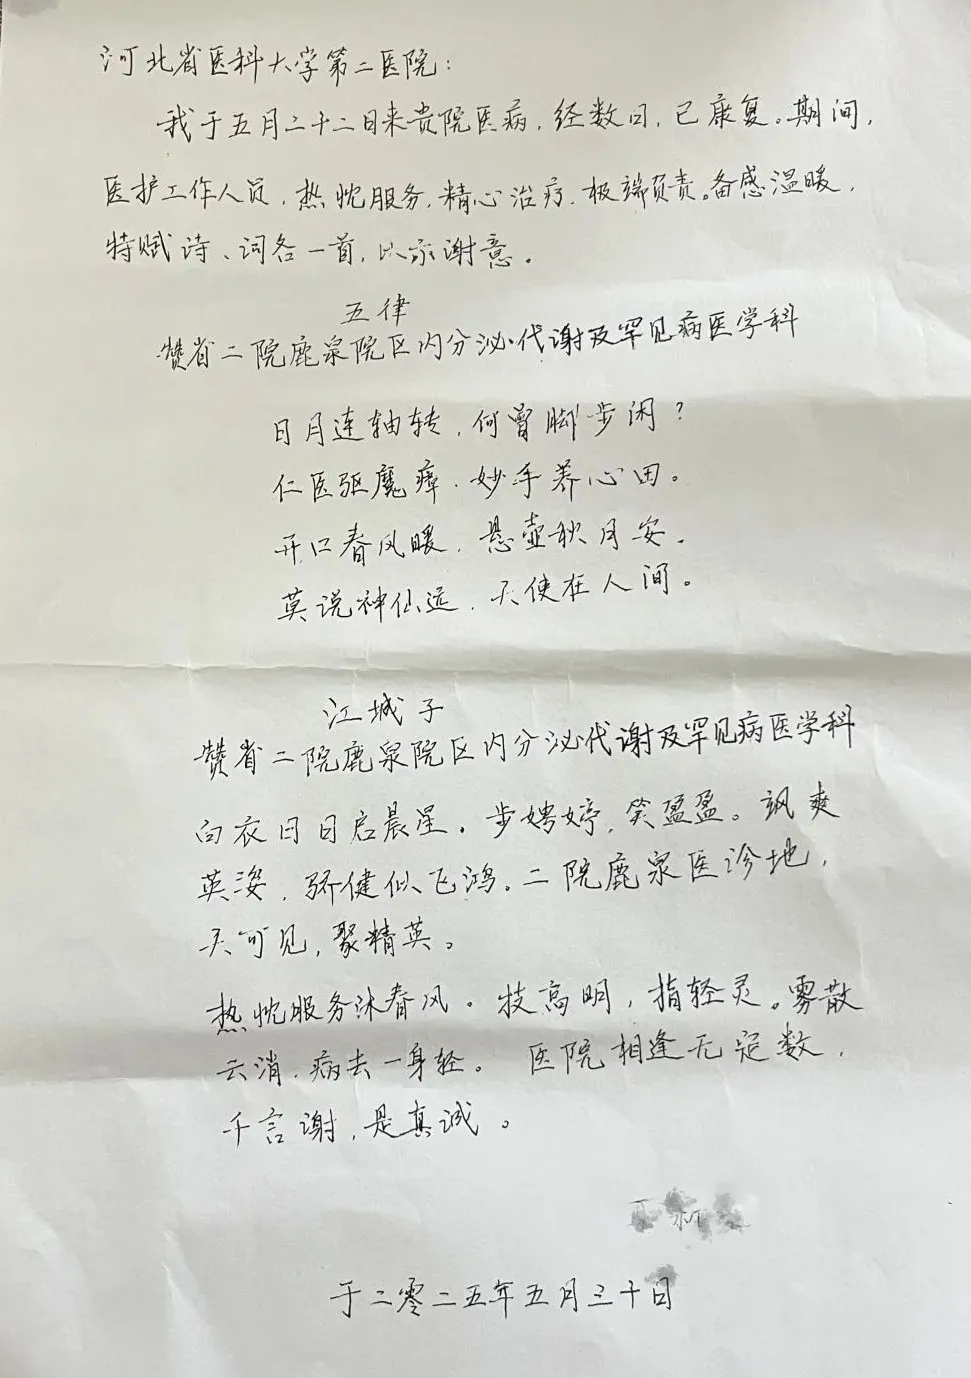 河北省医科大学第二医院：
我于五月二十二日来贵院医病，经数日，已康复。期间，
医护工作人员，热忱服务，精心治疗，极端负责。备感温暖，
特赋诗、词各一首，以示谢意。
五律
赞省二院鹿泉院区内分泌代谢及罕见病医学科
日月连轴转，何曾脚步闲？
仁医驱魔瘴，妙手养心田。
开口春风暖，悬壶秋月安。
莫说神仙远，天使在人间。
江城子
赞省二院鹿泉院区内分泌代谢及罕见病医学科
白衣日日启晨星。步娉婷，笑盈盈。飒爽
英姿，骄健似飞鸿。二院鹿泉医诊地，
天可见，聚精英。
热忱服务沐春风。技高明，指轻灵。雾散
云消，病去一身轻。医院相逢无定数，
千言谢，是真诚。
于二零二五年五月三十日